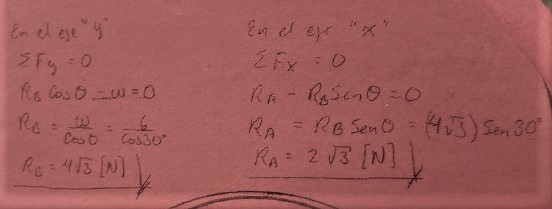 En el eje "y"
ΣFy = 0
RB Cosθ - w = 0
RB = w/Cosθ = 6/Cos30°
RB = 4√3 [N]
En el eje "x"
ΣFx = 0
RA - RB Senθ = 0
RA = RB Senθ = (4√3) Sen30°
RA = 2√3 [N]